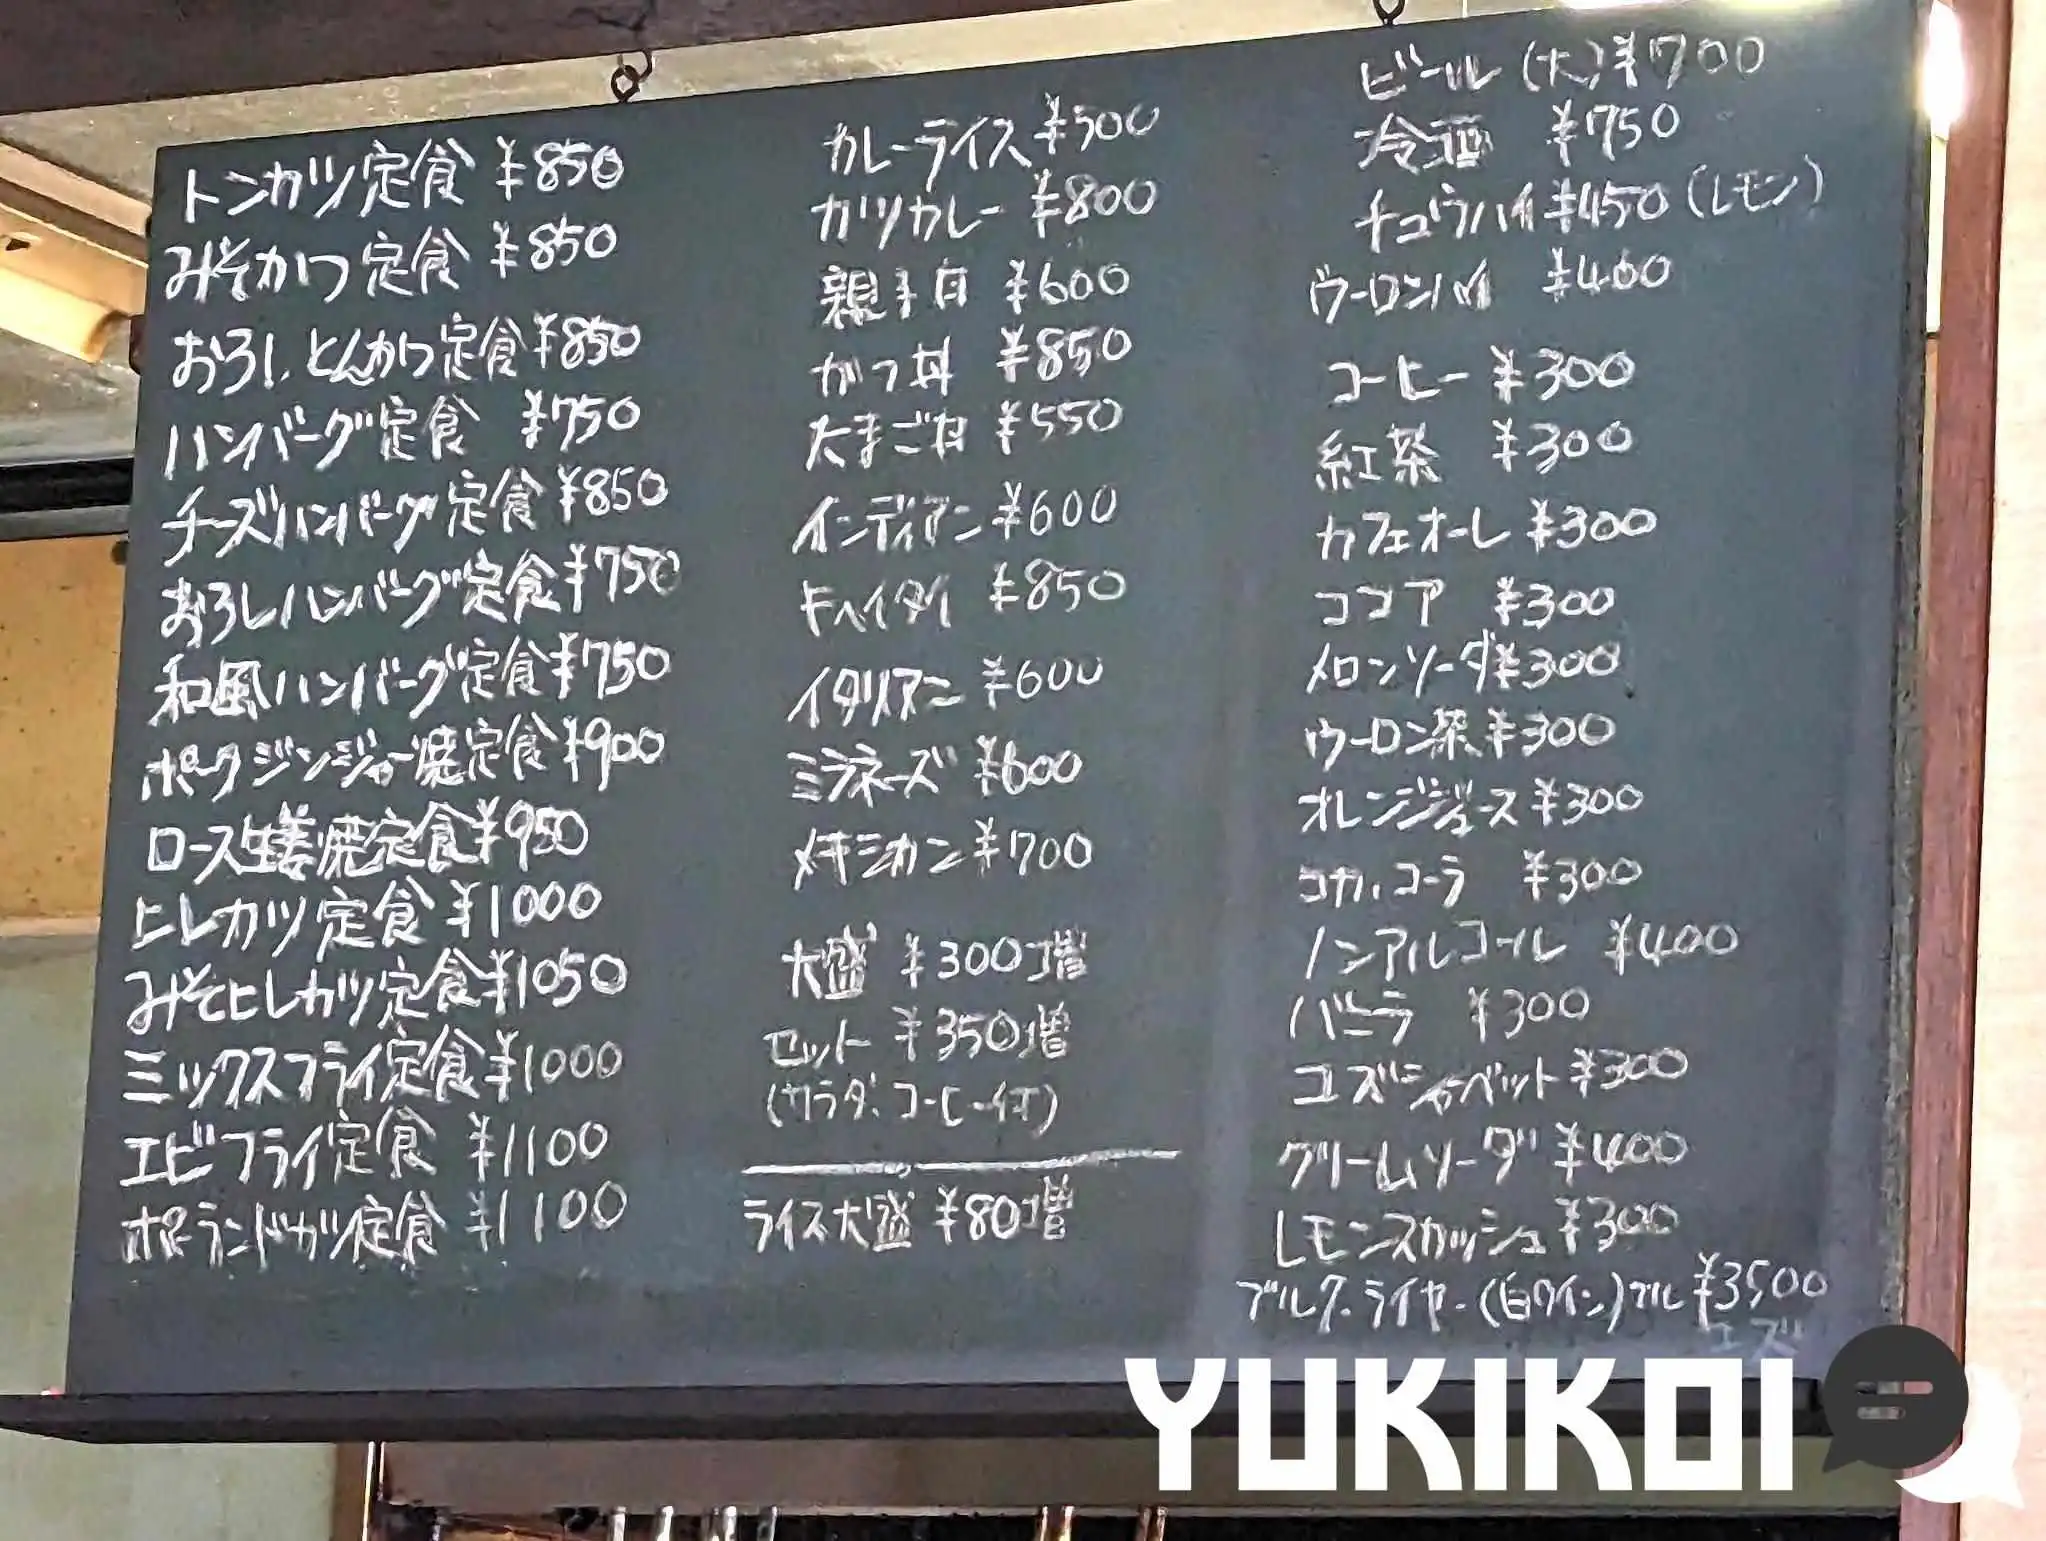 トンカツ定食 ¥850
みそかつ定食 ¥850
おろし、とんかつ定食 ¥850
ハンバーグ定食 ¥750
チーズハンバーグ定食 ¥850
おろしハンバーグ定食 ¥750
和風ハンバーグ定食 ¥750
ポークジンジャー焼定食 ¥900
ロース生姜焼定食 ¥950
ヒレカツ定食 ¥1000
みそヒレカツ定食 ¥1050
ミックスフライ定食 ¥1000
エビフライ定食 ¥1100
ポーランドカツ定食 ¥1100
カレーライス ¥500
カツカレー ¥800
親子丼 ¥600
かつ丼 ¥850
たまご丼 ¥550
インディアン ¥600
¥850
イタリアン ¥600
ミラネーズ ¥600
メキシカン ¥700
大盛 ¥300増
セット ¥350増
(サラダ、コーヒー付)
ライス大盛 ¥80増
ビール (大) ¥700
冷酒 ¥750
チュウハイ ¥450 (レモン)
ウーロンハイ ¥400
コーヒー ¥300
紅茶 ¥300
カフェオーレ ¥300
ココア ¥300
メロンソーダ ¥300
ウーロン茶 ¥300
オレンジジュース ¥300
コカ、コーラ ¥300
ノンアルコール ¥400
バニラ ¥300
ユズシャーベット ¥300
クリームソーダ ¥400
レモンスカッシュ ¥300
ブルク・ライヤー (白ワイン) フル ¥3500
YUKIKOI